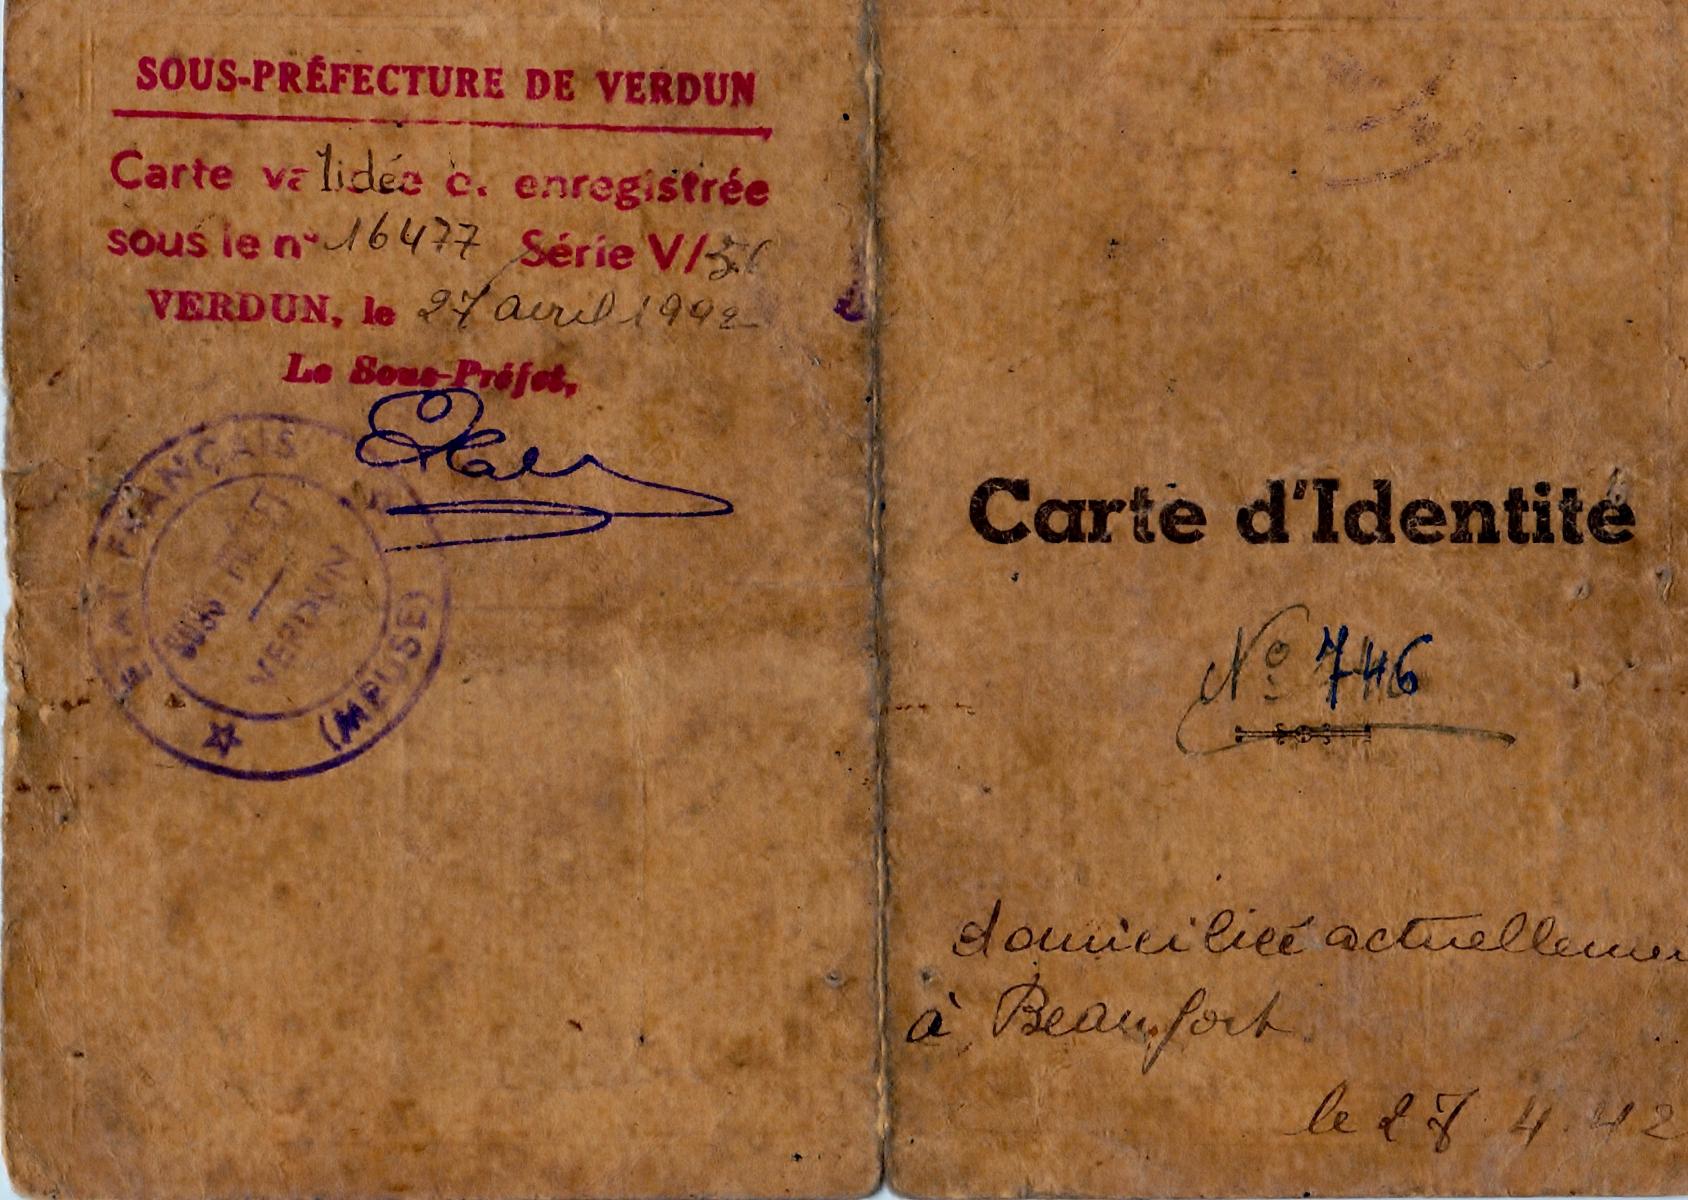 SOUS-PRÉFECTURE DE VERDUN
Carte validée e. enregistrée
sous le n° 16477 Série V/
VERDUN, le 27 avril 1942
Le Sous-Préfet,
ETAT FRANÇAIS
SOUS PRÉF
VERDUN
(MEUSE)
Carte d'Identité
N° 746
domiciliée actuellemen
à Beaufort
le 27 4.42